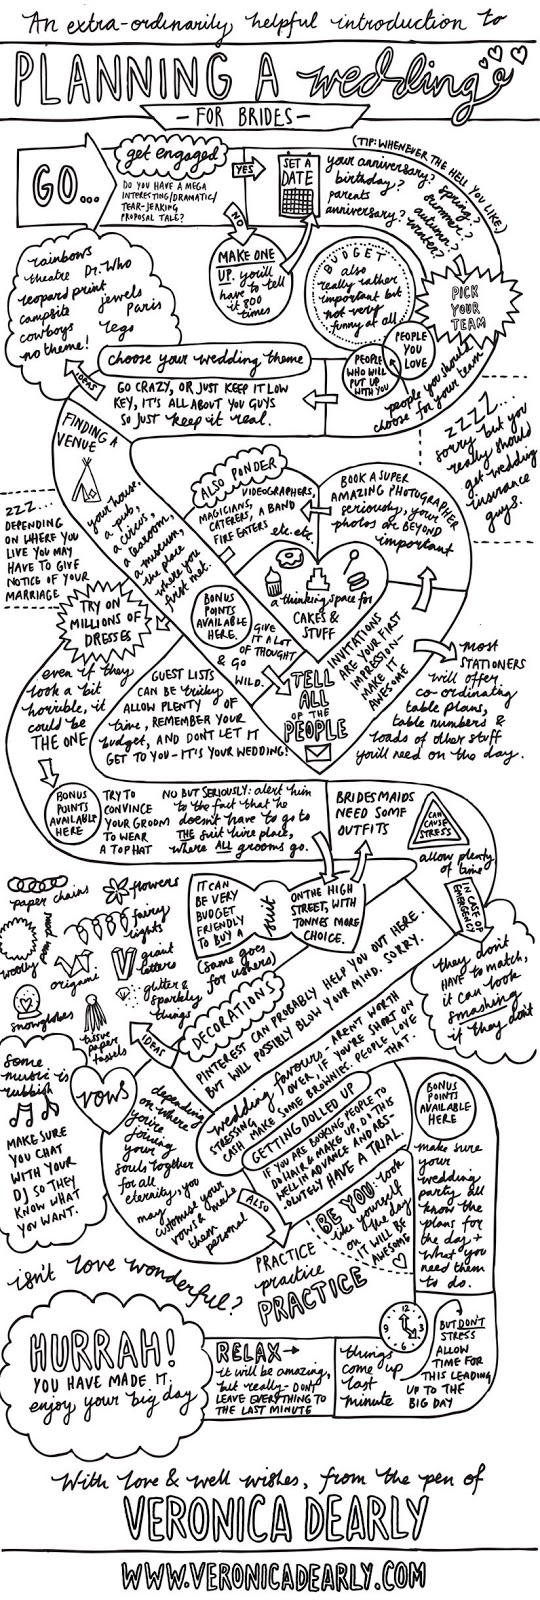 An extra-ordinarily helpful introduction to
PLANNING A wedding
- FOR BRIDES -
GO...
get engaged
DO YOU HAVE A MEGA
INTERESTING/DRAMATIC/
TEAR-JERKING
PROPOSAL TALE?
YES
NO
MAKE ONE
UP. you'll
have to tell
it 800
times
SET A
DATE
(TIP: WHENEVER THE HELL YOU LIKE)
your anniversary?
birthday?
parents
anniversary?
spring?
summer?
autumn?
winter?
BUDGET
also
really rather
important but
not very
funny at all
PICK
YOUR
TEAM
PEOPLE
YOU
LOVE
PEOPLE
WHO WILL
PUT UP
WITH YOU
people you should
choose for your team
rainbows
theatre Dr. Who
leopard print
campsite jewels
cowboys Paris
no theme! legs
choose your wedding theme
GO CRAZY, OR JUST KEEP IT LOW
KEY, IT'S ALL ABOUT YOU GUYS
SO JUST keep it real.
IDEAS
zzzz...
sorry but you
really should
get wedding
insurance
guys.
FINDING A
VENUE
your house,
a pub,
a circus,
a tearoom,
a museum,
the place
where you
first met.
zzz...
DEPENDING
ON WHERE YOU
LIVE YOU MAY
HAVE TO GIVE
NOTICE OF YOUR
MARRIAGE
ALSO PONDER
VIDEOGRAPHERS,
MAGICIANS,
CATERERS, A BAND
FIRE EATERS etc. etc.
BOOK A SUPER
AMAZING PHOTOGRAPHER
seriously, your
photos are BEYOND
important
a thinking space for
CAKES &
STUFF
BONUS
POINTS
AVAILABLE
HERE.
GIVE
IT A LOT
OF THOUGHT
& GO
WILD.
TELL
ALL
OF THE
PEOPLE
INVITATIONS
ARE YOUR FIRST
IMPRESSION-
MAKE 'EM
AWESOME
most
STATIONERS
will offer
co-ordinating
table plans,
table numbers &
loads of other stuff
you'll need on the day.
TRY ON
MILLIONS OF
DRESSES
even if they
look a bit
horrible, it
could be
THE ONE
GUEST LISTS
CAN BE tricky
ALLOW PLENTY OF
time, REMEMBER YOUR
budget, AND DON'T LET IT
GET TO YOU - IT'S YOUR WEDDING!
BONUS
POINTS
AVAILABLE
HERE
TRY TO
CONVINCE
YOUR GROOM
TO WEAR
A TOP HAT
NO BUT SERIOUSLY: alert him
to the fact that he
doesn't have to go to
THE suit hire place,
where ALL grooms go.
BRIDESMAIDS
NEED SOME
OUTFITS
CAN
CAUSE
STRESS
allow plenty
of time
IN CASE OF
EMERGENCY
they don't
HAVE to match,
it can look
smashing
if they don't
IT CAN
BE VERY
BUDGET
FRIENDLY
TO BUY A
suit
ON THE HIGH
STREET, WITH
TONNES MORE
CHOICE.
(same goes
for ushers)
paper chains
flowers
woolly
fairy
lights
origami
giant
letters
glitter &
sparkly
things
snowglobes
tissue
paper
tassels
IDEAS
DECORATIONS
PINTEREST CAN PROBABLY HELP YOU OUT HERE.
BUT WILL POSSIBLY BLOW YOUR MIND. SORRY.
wedding favours. AREN'T WORTH
STRESSING OVER, IF YOU'RE SHORT ON
CASH MAKE SOME BROWNIES. PEOPLE LOVE
THAT.
GETTING DOLLED UP
IF YOU ARE BOOKING PEOPLE TO
DO HAIR & MAKE UP, DO THIS
WELL IN ADVANCE AND ABS-
OLUTELY HAVE A TRIAL.
BE YOU: look
like yourself
on the day
IT WILL BE
AWESOME
some
music is
rubbish
MAKE SURE
YOU CHAT
WITH YOUR
DJ SO THEY
KNOW WHAT
YOU WANT.
vows
depending
on where
you're
joining
your
souls together
for all
eternity, you
may
customise your
vows & make
them
personal
ALSO
PRACTICE
practice
PRACTICE
BONUS
POINTS
AVAILABLE
HERE
make sure
your
wedding
party all
know the
plans for
the day +
what you
need them
to do.
isn't love wonderful?
12
3
9
things
come up
last
minute
BUT DON'T
STRESS
ALLOW
TIME FOR
THIS LEADING
UP TO THE
BIG DAY
RELAX
it will be amazing,
but really - DON'T
LEAVE EVERYTHING TO
THE LAST MINUTE
HURRAH!
YOU HAVE MADE IT,
enjoy your big day
With love & well wishes, from the pen of
VERONICA DEARLY
WWW.VERONICADEARLY.COM